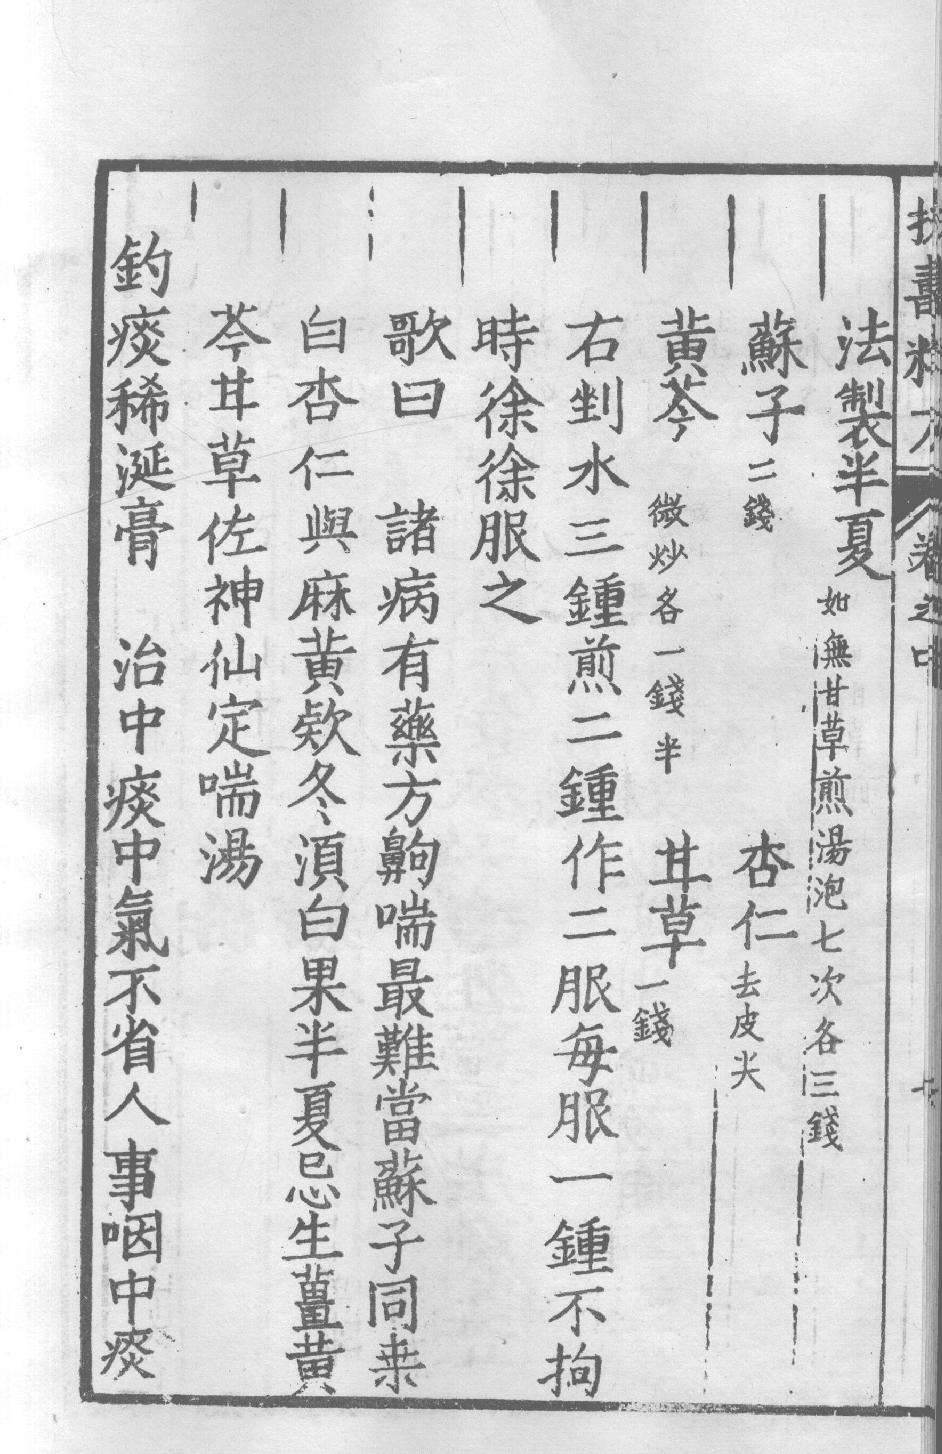 扶壽精方 卷之中
法製半夏如無甘草煎湯泡七次各三錢
蘇子二錢 杏仁去皮尖
黃芩微炒各一錢半 甘草一錢
右剉水三鍾煎二鍾作二服每服一鍾不拘
時徐徐服之
歌曰 諸病有藥方齁喘最難當蘇子同桒
白杏仁與麻黃欵冬湏白果半夏忌生薑黃
芩甘草佐神仙定喘湯
釣痰稀涎膏 治中痰中氣不省人事咽中痰